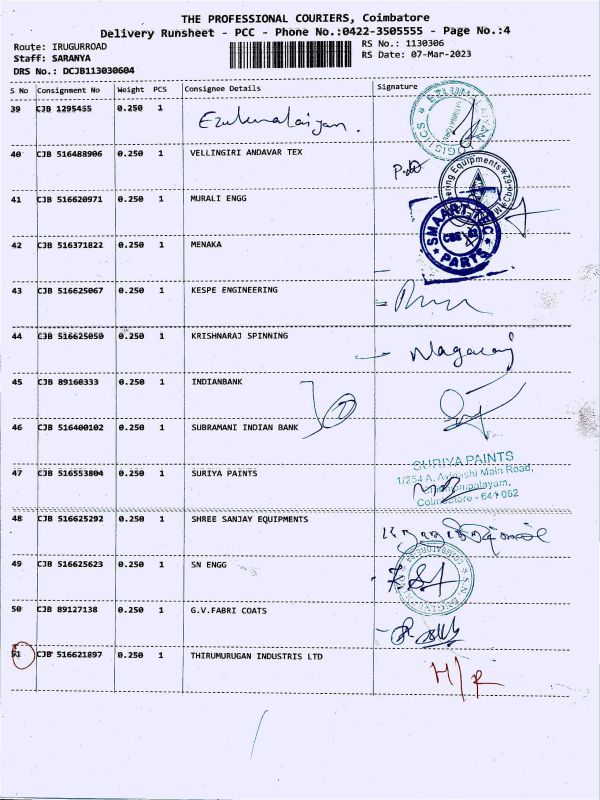 THE PROFESSIONAL COURIERS, Coimbatore
Delivery Runsheet - PCC - Phone No.:0422-3505555 - Page No.:4
Route: IRUGURROAD RS No.: 1130306
Staff: SARANYA RS Date: 07-Mar-2023
DRS No.: DCJB113030604
S No Consignment No Weight PCS Consignee Details Signature
39 CJB 1295455 0.250 1
40 CJB 516488906 0.250 1 VELLINGIRI ANDAVAR TEX
41 CJB 516620971 0.250 1 MURALI ENGG
SMAART-TEC
CBE
PARTS
42 CJB 516371822 0.250 1 MENAKA
43 CJB 516625067 0.250 1 KESPE ENGINEERING
44 CJB 516625050 0.250 1 KRISHNARAJ SPINNING Nagaraj
45 CJB 89160333 0.250 1 INDIANBANK
46 CJB 516400102 0.250 1 SUBRAMANI INDIAN BANK
47 CJB 516553804 0.250 1 SURIYA PAINTS
SURIYA PAINTS
1/254 A, Avinashi Main Road,
Coimbatore - 641 062
48 CJB 516625292 0.250 1 SHREE SANJAY EQUIPMENTS
49 CJB 516625623 0.250 1 SN ENGG
50 CJB 89127138 0.250 1 G.V.FABRI COATS
51 CJB 516621897 0.250 1 THIRUMURUGAN INDUSTRIS LTD H/R